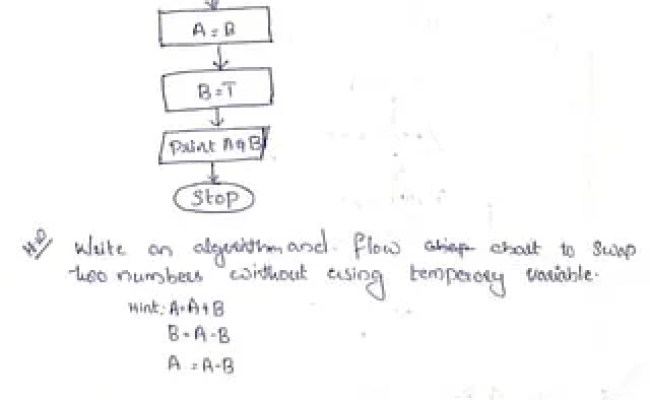 A = B
B = T
Print A & B
Stop
HW Write an algorithm and flow chart to swap
two numbers without using temperory variable.
Hint: A = A + B
B = A - B
A = A - B